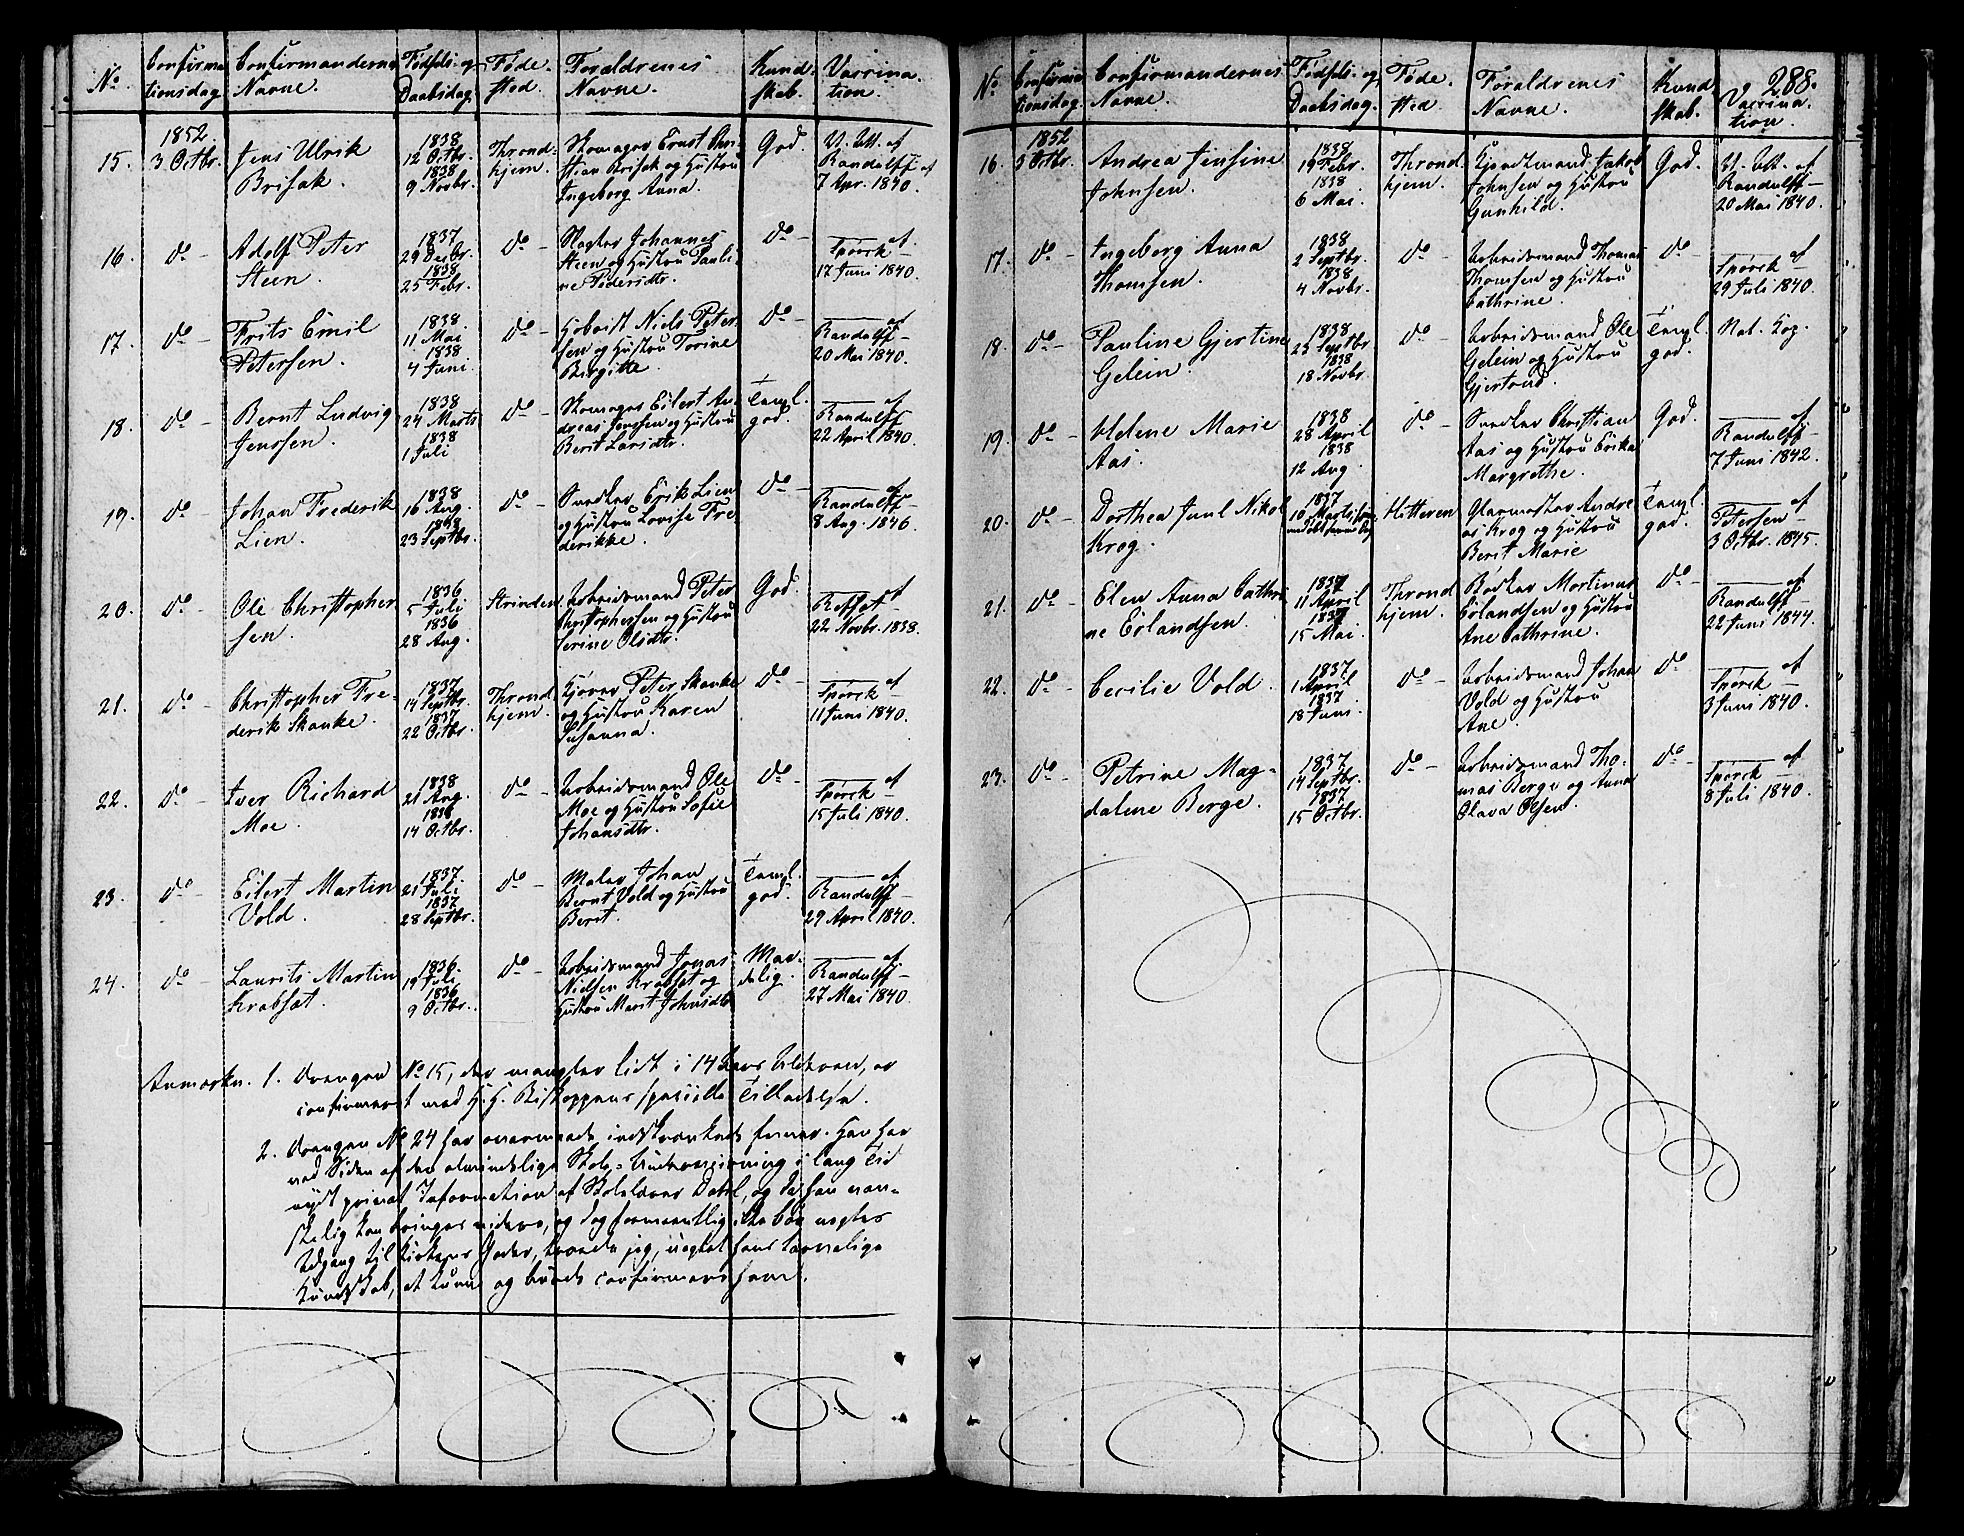 No.
Confirma
tionsdag
Confirmandernes
Navne.
Fødsels- og
Daabsdag.
Føde-
sted.
Forældrenes
Navne.
Kund-
skab.
Vaccina-
tion.
15.
1852.
3 Octbr.
Jens Ulrik
Brisak.
1838
12 Octbr.
1838
9 Novbr.
Thrond-
hjem.
Skomager Ernst Chri-
stian Brisak og Hustru
Ingeborg Anna.
God.
V. Att. af
Randulff af
7 Apr. 1840.
16.
do -
Adolf Peter
Steen.
1837
29 Decbr.
1838
25 Febr.
do -
Slagter Johannes
Steen og Hustru Pauli-
ne Pedersdtr.
do -
af
Spørck -
17 Juni 1840.
17.
do -
Frits Emil
Petersen.
1838.
11 Mai
1838
4 Juni.
do -
Hoboist Niels Peter-
sen og Hustru Torine
Birgitte.
do -
af
Randulff -
20 Mai 1840.
18.
do -
Bernt Ludvig
Jenssen.
1838
24 Marts
1838
1 Juli
do -
Skomager Eilert An-
dreas Jenssen og Hustru
Berit Larsdtr.
Teml.
god.
af
Randulff
22 April 1840.
19.
do -
Johan Frederik
Lien.
1838
16 Aug.
1838
23 Septbr.
do -
Snedker Erik Lien
og Hustru Lovise Fre-
derikke.
do -
af
Randulff -
8 Aug. 1846.
20.
do -
Ole Christopher
sen.
1836
5 Juli
1836
28 Aug.
Strinden
Arbeidsmand Peter
Christophersen og Hustru
Serine Olsdtr.
God.
af
22 Novbr. 1838.
21.
do -
Christopher Fre-
derik Skanke.
1837
14 Septbr.
1837
22 Octbr.
Thrond
hjem.
Kjører Peter Skanke
og Hustru Karen
Susanna.
do -
af
Spørck -
11 Juni 1840.
22.
do -
Iver Richard
Moe.
1838
21 Aug.
1838
14 Octbr.
do -
Arbeidsmand Ole
Moe og Hustru Sofie
Johansdtr.
do -
af
Spørck -
15 Juli 1840.
23.
do -
Eilert Martin
Vold.
1837.
21 Juli
1837
28 Septbr.
do -
Maler Johan
Bernt Vold og Hustru
Berit.
Teml.
god.
af
Randulff -
29 April 1840.
24.
do -
Laurits Martin
Krabsæt.
1836.
19 Juli
1836
9 Octbr.
do -
Arbeidsmand Jonas
Nielsen Krabsæt og
Hustru Marit Johnsdtr.
Maa-
delig.
af
Randulff -
27 Mai 1840.
Anmærkn. 1. Drengen No 15, der mangler lidt i 14 Aars Alderen, er
confirmeret med H. H. Biskoppens specielle Tilladelse.
2. Drengen No 24 har overmaade indskrænkede Evner. Han har
ved Siden af den almindelige Skole-Underviisning i lang Tid
nydt privat Information af Skolelærer Dahl, og da han van-
skelig kan bringes videre, og dog formeentlig ikke bør nægtes
Adgang til Kirkens Goder, troede jeg, uagtet hans tarvelige
Kundskab, at kunne og burde confirmere ham.
288.
No.
Confirma
tionsdag.
Confirmandernes
Navne.
Fødsels- og
Daabsdag.
Føde-
sted
Forældrenes
Navne.
Kund
skab.
Vaccina-
tion.
16.
1852
3 Octbr.
Andrea Jensine
Johnsen.
1838
19 Febr.
1838
6 Mai.
Thrond
hjem.
Gjordtmand Jakob
Johnsen og Hustru
Gunhild.
God.
V. Att. af
Randulff -
20 Mai 1840.
17.
do -
Ingeborg Anna
Thomsen.
1838
2 Septbr.
1838
4 Novbr.
do -
Arbeidsmand Thomas
Thomsen og Hustru
Cathrine.
do -
Spørck -
29 Juli 1840.
18.
do -
Pauline Gjertine
Gelein.
1838
23 Septbr.
1838
18 Novbr.
do -
Arbeidsmand Ole
Gelein og Hustru
Gjertrud.
Teml.
god.
Nat. Kop.
19.
do -
Helene Marie
Aas.
1838
28 April
1838
12 Aug.
do -
Snedker Christian
Aas og Hustru Erika
Margrethe.
God.
af
Randulff -
7 Juni 1842.
20.
do -
Dorthea Juul Nikol
Krog.
1837
16 Marts
Hitteren
Glarmester Andre
as Krog og Hustru
Berit Marie
Teml.
god.
af
Petersen -
3 Octbr. 1845.
21.
do -
Elen Anna Cathri
ne Erlandsen.
1837
11 April
1837
15 Mai.
Thrond
hjem.
Bødker Martinus
Erlandsen og Hustru
Ane Cathrine.
do -
af
Randulff -
22 Juni 1844.
22.
do -
Cecilie Vold.
1837.
1 April
1837
18 Juni.
do -
Arbeidsmand Johan
Vold og Hustru
Ane.
do -
af
Spørck -
3 Juni 1840.
23.
do -
Petrine Mag-
dalene Berge.
1837.
14 Septbr.
1837
15 Octbr.
do -
Arbeidsmand Tho-
mas Berge og Anna
Olava Olsen.
do -
af
Spørck -
8 Juli 1840.